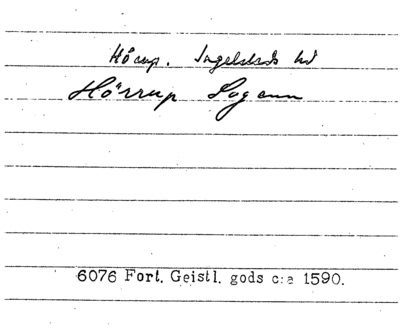 Hörup. Ingelstads hd
Hörrup Sogenn
6076 Fort. Geistl. gods c:a 1590.